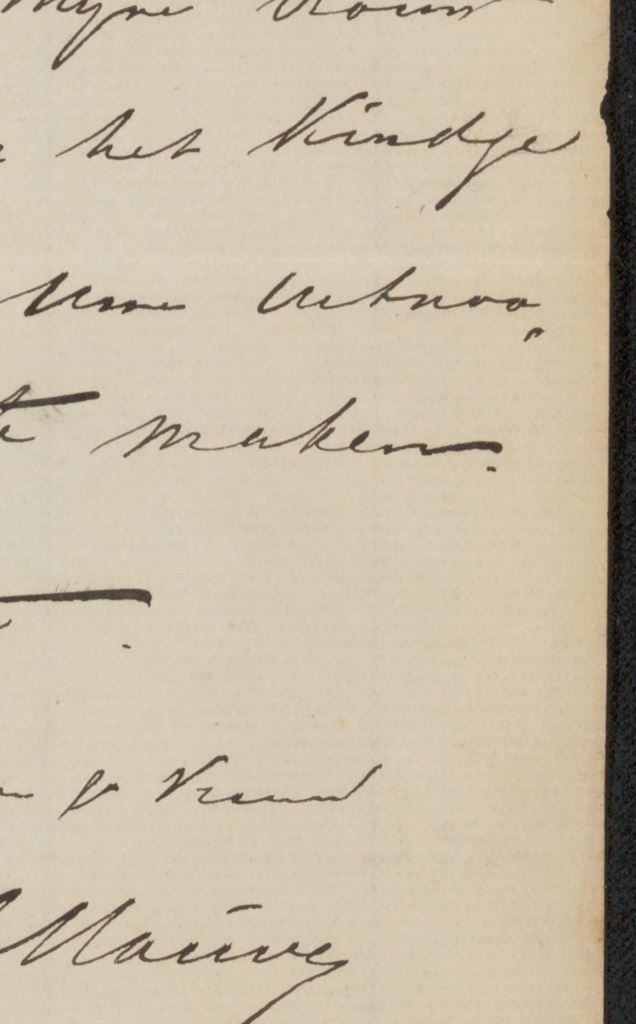 Myne Vrouw
het Kindje
Uwe Uitnoo„
te maken.
je Vriend
Mauve